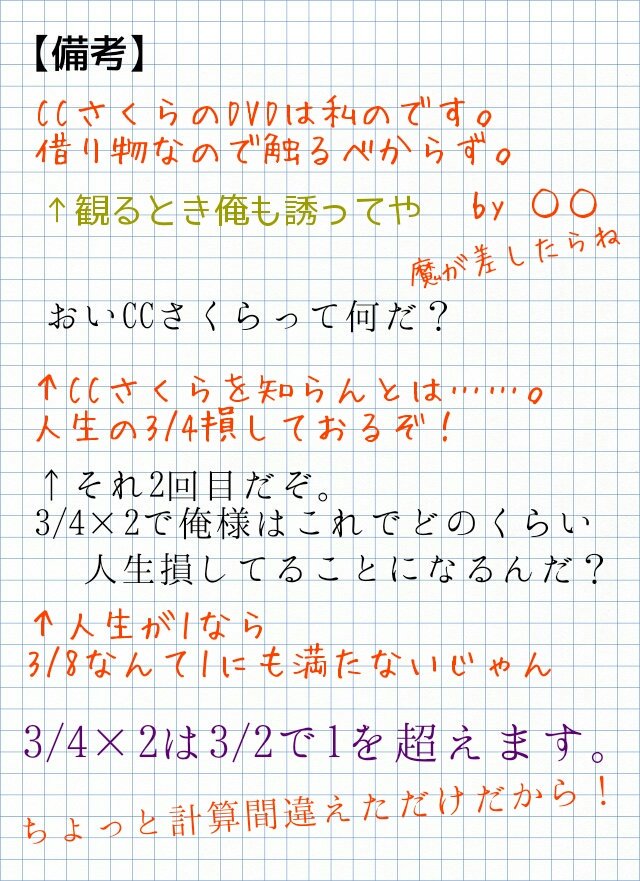 【備考】
CCさくらのDVDは私のです。
借り物なので触るべからず。
↑観るとき俺も誘ってや
by 〇〇
魔が差したらね
おいCCさくらって何だ？
↑CCさくらを知らんとは……。
人生の3/4損しておるぞ！
↑それ2回目だぞ。
3/4×2で俺様はこれでどのくらい
人生損してることになるんだ？
↑人生が1なら
3/8なんて1にも満たないじゃん
3/4×2は3/2で1を超えます。
ちょっと計算間違えただけだから！